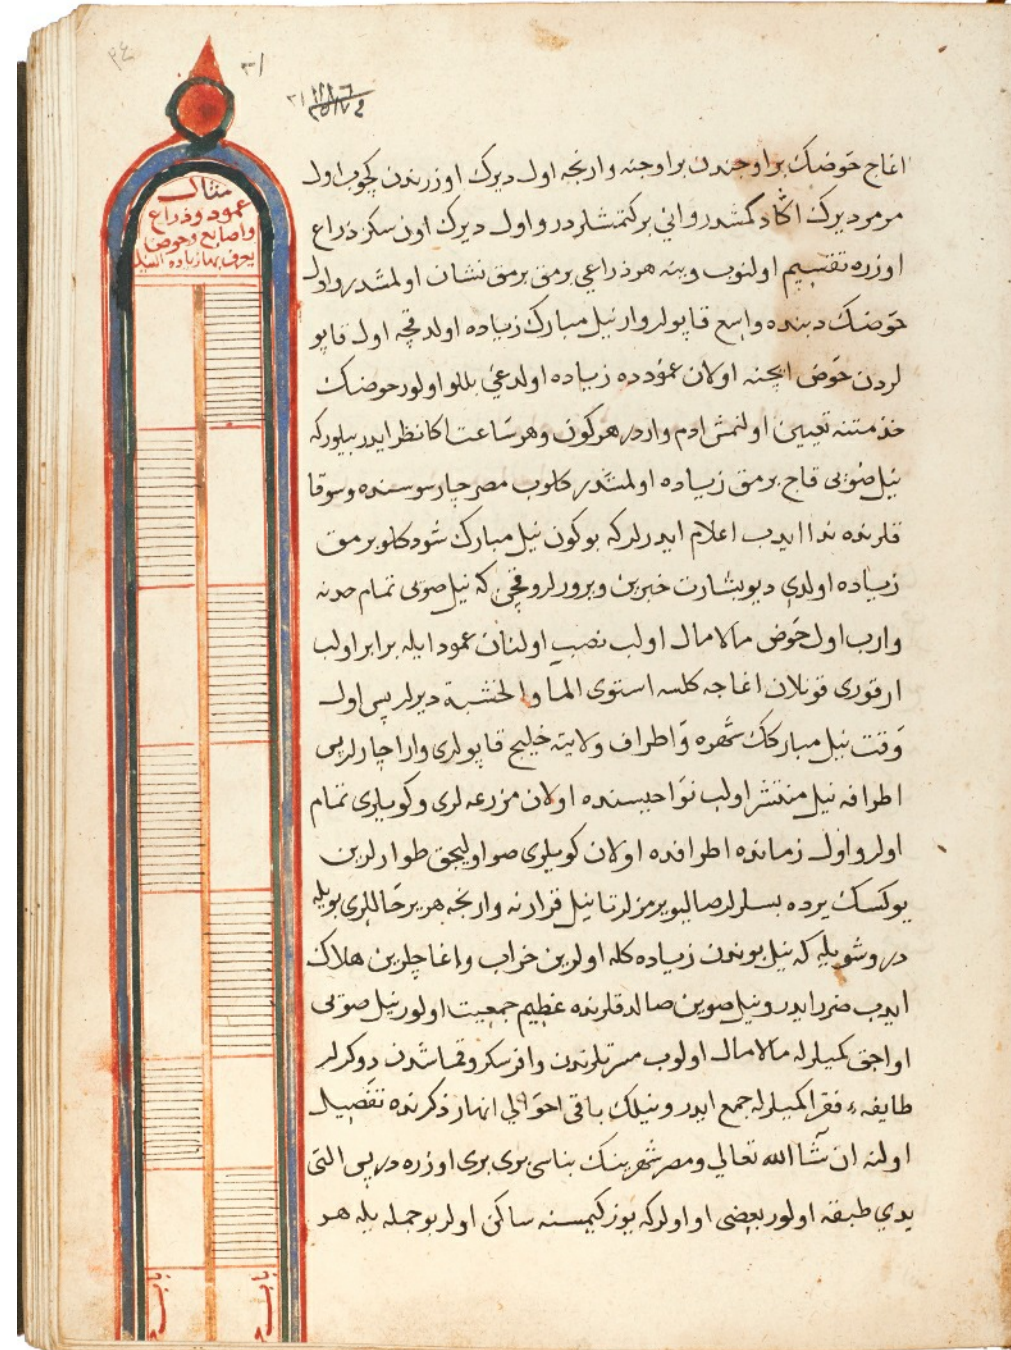 ٣٤
٣١
٣١
مثال
عمود و ذراع
واصابع وحوض
يعرف بها زياده النيل
اغاج حَوضك بر اوجندن بر اوجنه وارنجه اول ديرك اوزرندن كچوب اول
مرمر ديرك اڭا دكمشدر واني بركتمشلردر و اول ديرك اون سكز ذراع
اوزره تقسيم اولنوب وينه هر ذراعي برمق برمق نشان اولمشدر واول
حَوضك دبنده واسع قاپولر وار نيل مبارك زياده اولدقچه اول قاپو
لردن حَوض ايچنه اولان عمودده زياده اولدغي بللو اولور حوضك
خذمتنه تعيين اولنمش ادم واردر هر كون وهر سَاعت اكا نظر ايدر بيلور كه
نيل صويى قاچ برمق زياده اولمشدر كلوب مصر چارسوسنده وسوقا
قلرنده ندا ايدب اعلام ايدرلر كه بو كون نيل مبارك شودكلو برمق
زياده اولدي ديو بشارت خبرين ويرورلر وقچن كه نيل صويى تمام حدنه
وارب اول حَوض مالامال اولب نصب اولنان عمود ايله برابر اولب
ارقورى قونلان اغاجه كلسه استوى الما والخشبة ديرلر پس اول
وَقت نيل مباركك شهره وَاطراف ولايته خليج قاپولرى وار اچارلر پس
اطرافه نيل منتشر اولب نوَاحيسنده اولان مزرعه لرى وكويلرى تمام
اولر و اول زمانده اطرافده اولان كويلرى صو اوليجق طوارلرين
يوكسك يرده بسلرلر صاليويرمزلر تا نيل قرارنه وارنجه هر ير حَاللرى بويله
در وشويله كه نيل بوندن زياده كله اولرين خراب و اغاچلرين هلاك
ايدب ضرر ايدر و نيل صوين صالدقلرنده عظيم جمعيت اولور نيل صويى
اواجق كميلرله مالامال اولوب مسرتلرندن وافر سكر و قماشدن دوكرلر
طايفهء فقرا كميلرله جمع ايدر و نيلك باقى احوَالي انهار ذكرنده تفصيل
اولنه ان شآ الله تعالي و مصر شهرينك بناسى برى برى اوزره در پس التى
يدي طبقه اولور بعضى او اولور كه يوز كيمسنه ساكن اولر بو جمله يله هر